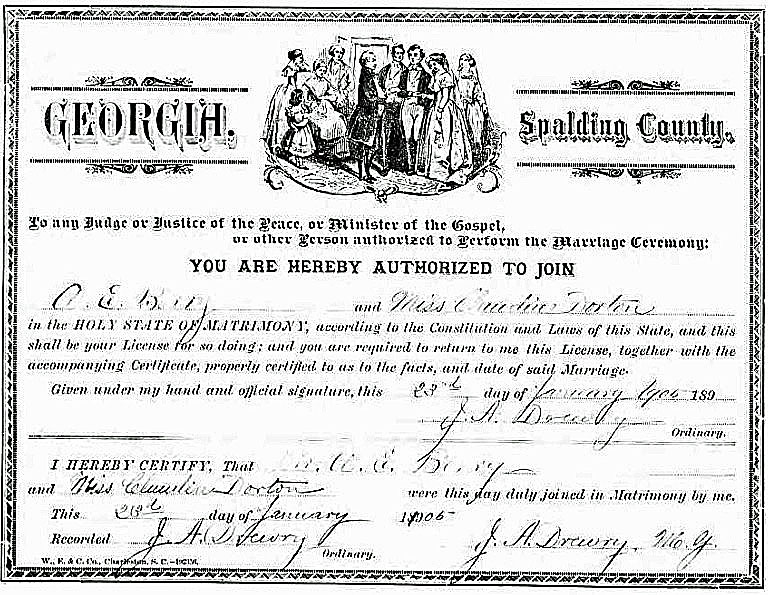 GEORGIA.
Spalding County.
To any Judge or Justice of the Peace, or Minister of the Gospel,
or other Person authorized to Perform the Marriage Ceremony:
YOU ARE HEREBY AUTHORIZED TO JOIN
A. E. Berry and Miss Claudine Dorton
in the HOLY STATE OF MATRIMONY, according to the Constitution and Laws of this State, and this
shall be your License for so doing; and you are required to return to me this License, together with the
accompanying Certificate, properly certified to as to the facts, and date of said Marriage.
Given under my hand and official signature, this 23rd day of January 1905 189
J. A. Drewry
Ordinary.
I HEREBY CERTIFY, That A. E. Berry
and Miss Claudine Dorton were this day duly joined in Matrimony by me.
This 23rd day of January 1905
Recorded J. A. Drewry Ordinary. J. A. Drewry, M. G.
W., E. & C. Co., Charleston, S. C.